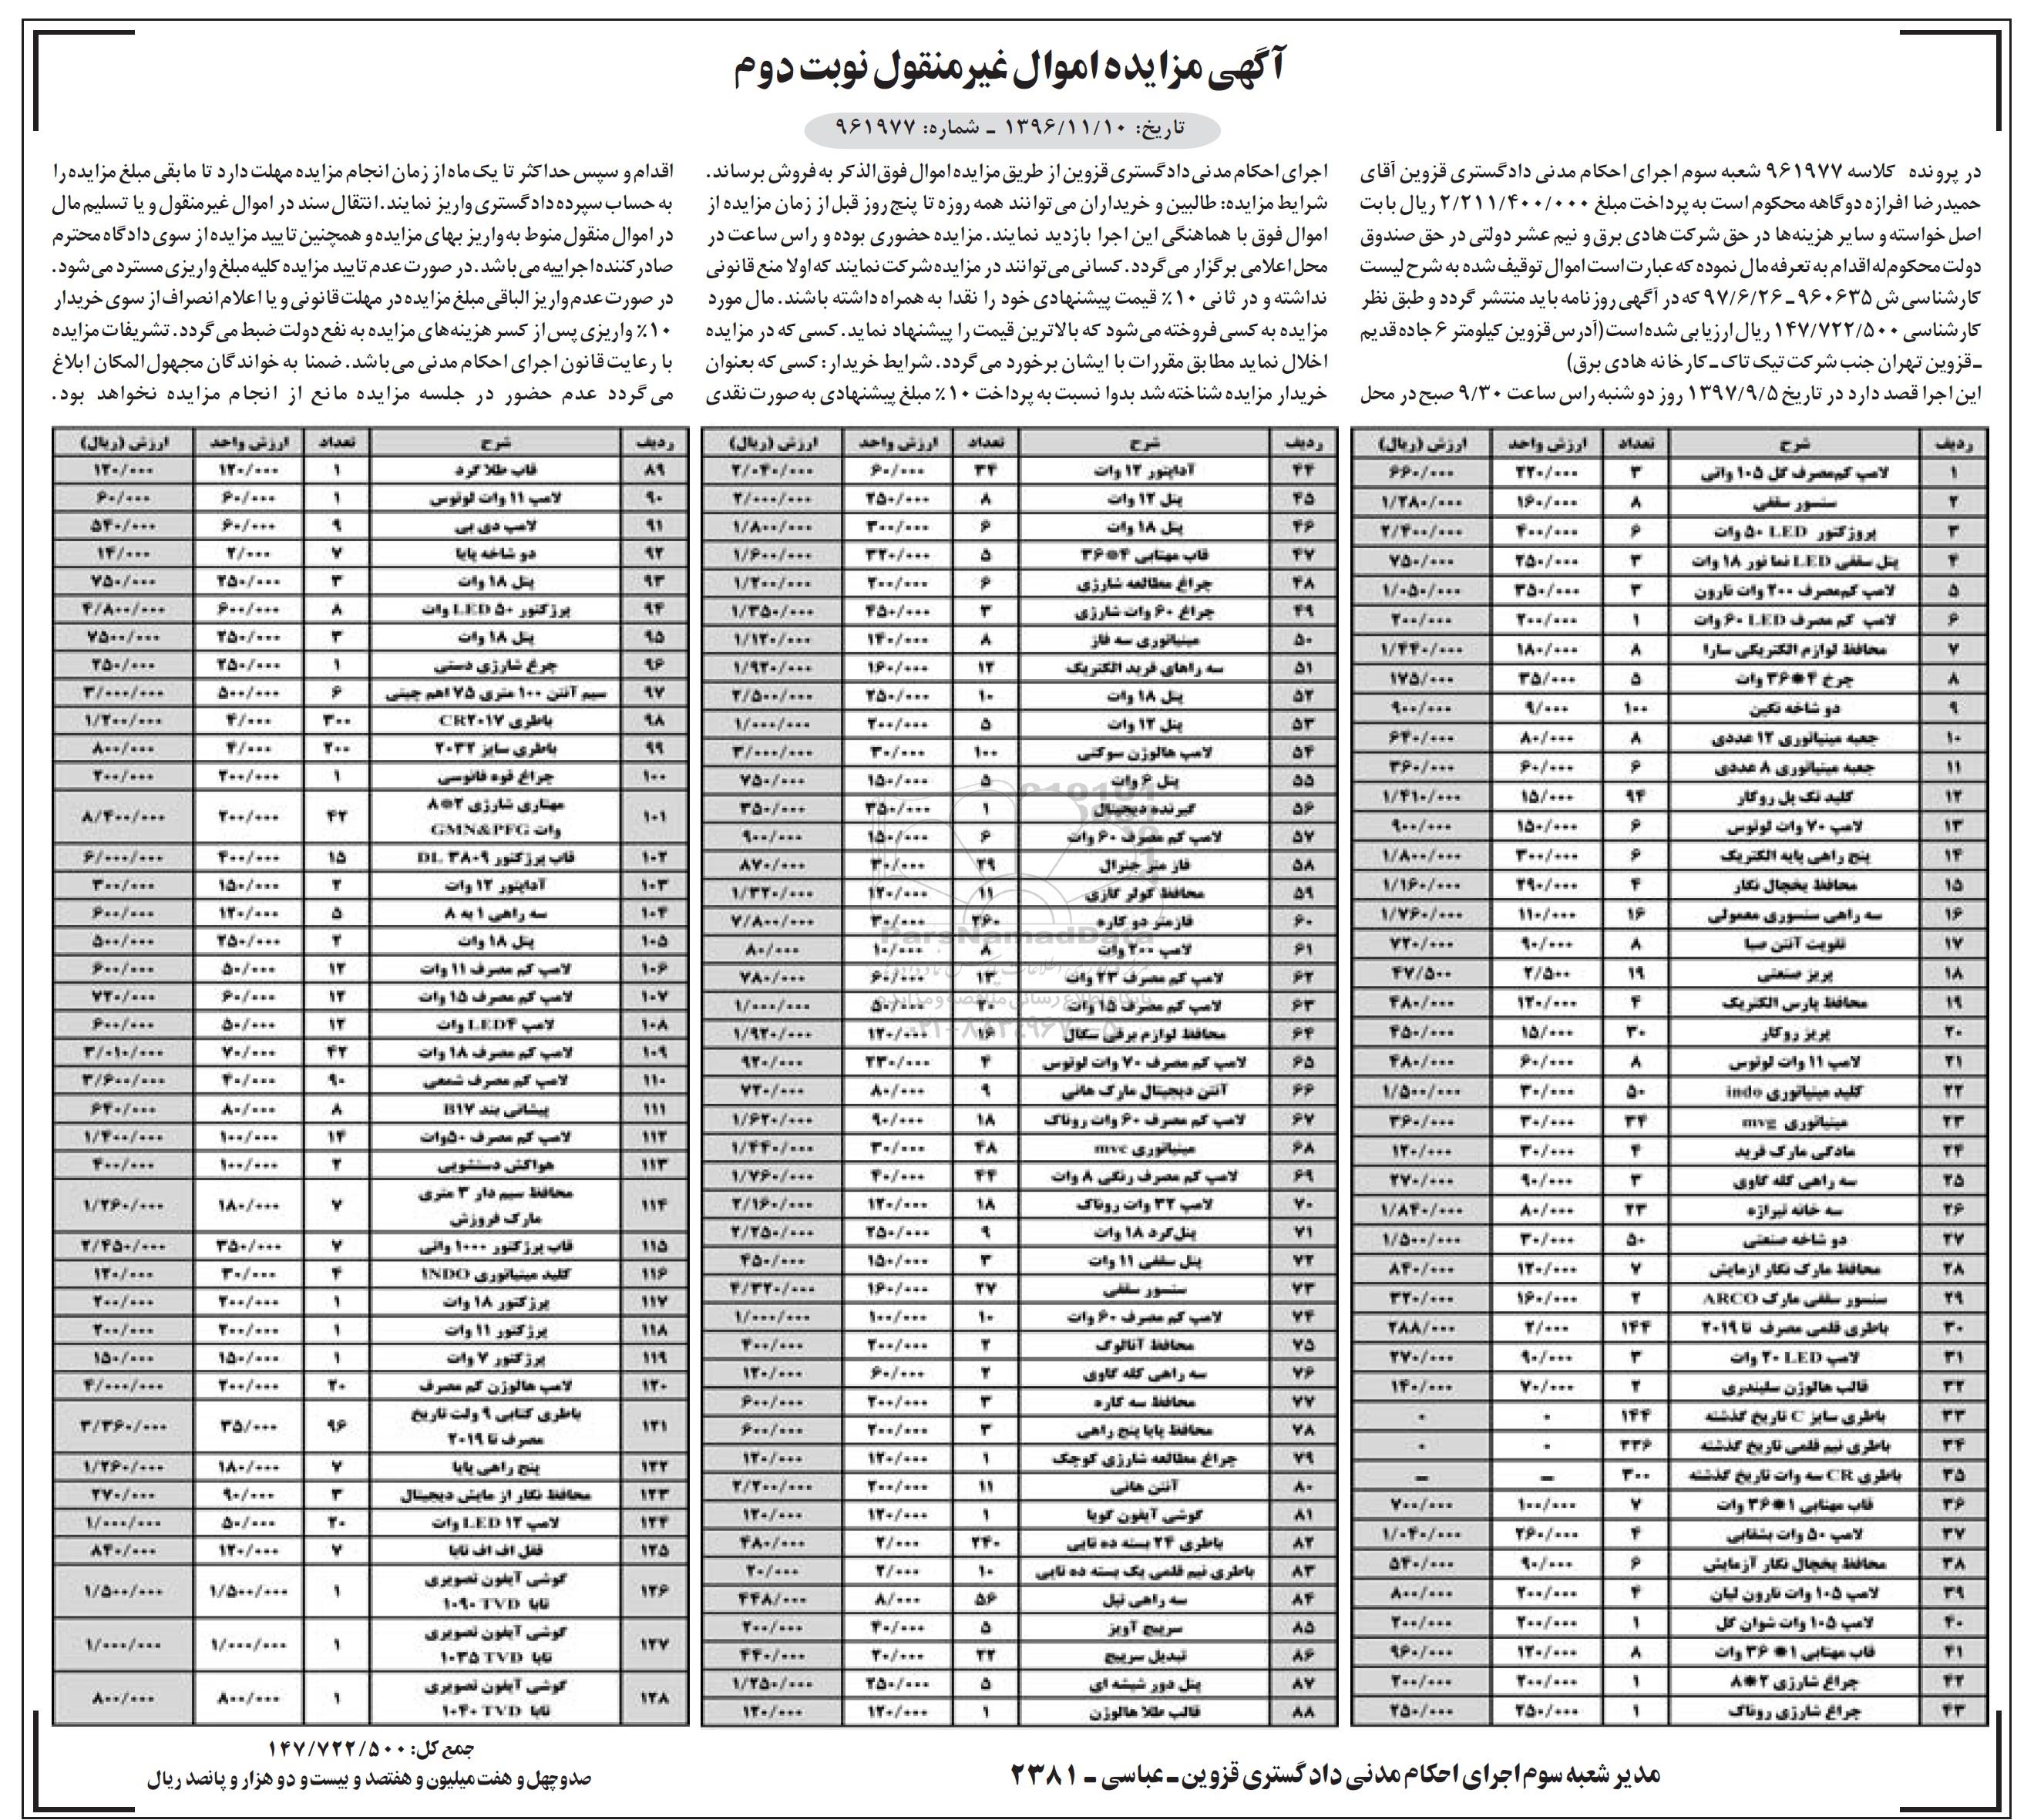 آگهی مزایده اموال غیرمنقول نوبت دوم
تاریخ: ۱۳۹۶/۱۱/۱۰ ـ شماره: ۹۶۱۹۷۷
در پرونده کلاسه ۹۶۱۹۷۷ شعبه سوم اجرای احکام مدنی دادگستری قزوین آقای
حمیدرضا افرازه دوگاهه محکوم است به پرداخت مبلغ ۲/۲۱۱/۴۰۰/۰۰۰ ریال بابت
اصل خواسته و سایر هزینه‌ها در حق شرکت هادی برق و نیم عشر دولتی در حق صندوق
دولت محکوم‌له اقدام به تعرفه مال نموده که عبارت است اموال توقیف شده به شرح لیست
کارشناسی ش ۹۶۰۶۳۵ ـ ۹۷/۶/۲۶ که در آگهی روزنامه باید منتشر گردد و طبق نظر
کارشناسی ۱۴۷/۷۲۲/۵۰۰ ریال ارزیابی شده است (آدرس قزوین کیلومتر ۶ جاده قدیم
ـ قزوین تهران جنب شرکت تیک تاک ـ کارخانه هادی برق)
این اجرا قصد دارد در تاریخ ۱۳۹۷/۹/۵ روز دوشنبه راس ساعت ۹/۳۰ صبح در محل
اجرای احکام مدنی دادگستری قزوین از طریق مزایده اموال فوق‌الذکر به فروش برساند.
شرایط مزایده: طالبین و خریداران می‌توانند همه روزه تا پنج روز قبل از زمان مزایده از
اموال فوق با هماهنگی این اجرا بازدید نمایند. مزایده حضوری بوده و راس ساعت در
محل اعلامی برگزار می‌گردد. کسانی می‌توانند در مزایده شرکت نمایند که اولا منع قانونی
نداشته و در ثانی ۱۰٪ قیمت پیشنهادی خود را نقدا به همراه داشته باشند. مال مورد
مزایده به کسی فروخته می‌شود که بالاترین قیمت را پیشنهاد نماید. کسی که در مزایده
اخلال نماید مطابق مقررات با ایشان برخورد می‌گردد. شرایط خریدار: کسی که بعنوان
خریدار مزایده شناخته شد بدوا نسبت به پرداخت ۱۰٪ مبلغ پیشنهادی به صورت نقدی
اقدام و سپس حداکثر تا یک ماه از زمان انجام مزایده مهلت دارد تا مابقی مبلغ مزایده را
به حساب سپرده دادگستری واریز نمایند. انتقال سند در اموال غیرمنقول و یا تسلیم مال
در اموال منقول منوط به واریز بهای مزایده و همچنین تایید مزایده از سوی دادگاه محترم
صادرکننده اجراییه می‌باشد. در صورت عدم تایید مزایده کلیه مبلغ واریزی مسترد می‌شود.
در صورت عدم واریز الباقی مبلغ مزایده در مهلت قانونی و یا اعلام انصراف از سوی خریدار
۱۰٪ واریزی پس از کسر هزینه‌های مزایده به نفع دولت ضبط می‌گردد. تشریفات مزایده
با رعایت قانون اجرای احکام مدنی می‌باشد. ضمنا به خواندگان مجهول‌المکان ابلاغ
می‌گردد عدم حضور در جلسه مزایده مانع از انجام مزایده نخواهد بود.
ردیف شرح تعداد ارزش واحد ارزش (ریال)
۱ لامپ کم‌مصرف گل ۱۰۵ واتی ۳ ۲۲۰/۰۰۰ ۶۶۰/۰۰۰
۲ سنسور سقفی ۸ ۱۶۰/۰۰۰ ۱/۲۸۰/۰۰۰
۳ پروژکتور LED ۵۰ وات ۶ ۴۰۰/۰۰۰ ۲/۴۰۰/۰۰۰
۴ پنل سقفی LED نما نور ۱۸ وات ۳ ۲۵۰/۰۰۰ ۷۵۰/۰۰۰
۵ لامپ کم‌مصرف ۲۰۰ وات نارون ۳ ۳۵۰/۰۰۰ ۱/۰۵۰/۰۰۰
۶ لامپ کم مصرف LED ۶۰ وات ۱ ۲۰۰/۰۰۰ ۲۰۰/۰۰۰
۷ محافظ لوازم الکتریکی سارا ۸ ۱۸۰/۰۰۰ ۱/۴۴۰/۰۰۰
۸ چرخ ۴*۳۶ وات ۵ ۳۵/۰۰۰ ۱۷۵/۰۰۰
۹ دو شاخه نگین ۱۰۰ ۹/۰۰۰ ۹۰۰/۰۰۰
۱۰ جعبه مینیاتوری ۱۲ عددی ۸ ۸۰/۰۰۰ ۶۴۰/۰۰۰
۱۱ جعبه مینیاتوری ۸ عددی ۶ ۶۰/۰۰۰ ۳۶۰/۰۰۰
۱۲ کلید تک پل روکار ۹۴ ۱۵/۰۰۰ ۱/۴۱۰/۰۰۰
۱۳ لامپ ۷۰ وات لوتوس ۶ ۱۵۰/۰۰۰ ۹۰۰/۰۰۰
۱۴ پنج راهی پایه الکتریک ۶ ۳۰۰/۰۰۰ ۱/۸۰۰/۰۰۰
۱۵ محافظ یخچال نگار ۴ ۲۹۰/۰۰۰ ۱/۱۶۰/۰۰۰
۱۶ سه راهی سنسوری معمولی ۱۶ ۱۱۰/۰۰۰ ۱/۷۶۰/۰۰۰
۱۷ تقویت آنتن صبا ۸ ۹۰/۰۰۰ ۷۲۰/۰۰۰
۱۸ پریز صنعتی ۱۹ ۲/۵۰۰ ۴۷/۵۰۰
۱۹ محافظ پارس الکتریک ۴ ۱۲۰/۰۰۰ ۴۸۰/۰۰۰
۲۰ پریز روکار ۳۰ ۱۵/۰۰۰ ۴۵۰/۰۰۰
۲۱ لامپ ۱۱ وات لوتوس ۸ ۶۰/۰۰۰ ۴۸۰/۰۰۰
۲۲ کلید مینیاتوری indo ۵۰ ۳۰/۰۰۰ ۱/۵۰۰/۰۰۰
۲۳ مینیاتوری mvg ۳۴ ۳۰/۰۰۰ ۳۶۰/۰۰۰
۲۴ مادگی مارک فرید ۴ ۳۰/۰۰۰ ۱۲۰/۰۰۰
۲۵ سه راهی کله گاوی ۳ ۹۰/۰۰۰ ۲۷۰/۰۰۰
۲۶ سه خانه تیرازه ۲۳ ۸۰/۰۰۰ ۱/۸۴۰/۰۰۰
۲۷ دو شاخه صنعتی ۵۰ ۳۰/۰۰۰ ۱/۵۰۰/۰۰۰
۲۸ محافظ مارک نگار ازمایش ۷ ۱۲۰/۰۰۰ ۸۴۰/۰۰۰
۲۹ سنسور سقفی مارک ARCO ۲ ۱۶۰/۰۰۰ ۳۲۰/۰۰۰
۳۰ باطری قلمی مصرف تا ۲۰۱۹ ۱۴۴ ۲/۰۰۰ ۲۸۸/۰۰۰
۳۱ لامپ LED ۲۰ وات ۳ ۹۰/۰۰۰ ۲۷۰/۰۰۰
۳۲ قالب هالوژن سلیندری ۲ ۷۰/۰۰۰ ۱۴۰/۰۰۰
۳۳ باطری سایز C تاریخ گذشته ۱۴۴ ۰ ۰
۳۴ باطری نیم قلمی تاریخ گذشته ۳۳۶ ۰ ۰
۳۵ باطری CR سه وات تاریخ گذشته ۳۰۰ ـ ـ
۳۶ قاب مهتابی ۱*۳۶ وات ۷ ۱۰۰/۰۰۰ ۷۰۰/۰۰۰
۳۷ لامپ ۵۰ وات بشقابی ۴ ۲۶۰/۰۰۰ ۱/۰۴۰/۰۰۰
۳۸ محافظ یخچال نگار آزمایش ۶ ۹۰/۰۰۰ ۵۴۰/۰۰۰
۳۹ لامپ ۱۰۵ وات نارون لیان ۴ ۲۰۰/۰۰۰ ۸۰۰/۰۰۰
۴۰ لامپ ۱۰۵ وات شوان گل ۱ ۲۰۰/۰۰۰ ۲۰۰/۰۰۰
۴۱ قاب مهتابی ۱* ۳۶ وات ۸ ۱۲۰/۰۰۰ ۹۶۰/۰۰۰
۴۲ چراغ شارژی ۲*۸ ۱ ۲۰۰/۰۰۰ ۲۰۰/۰۰۰
۴۳ چراغ شارژی روناک ۱ ۲۵۰/۰۰۰ ۲۵۰/۰۰۰
ردیف شرح تعداد ارزش واحد ارزش (ریال)
۴۴ آداپتور ۱۲ وات ۳۴ ۶۰/۰۰۰ ۲/۰۴۰/۰۰۰
۴۵ پنل ۱۲ وات ۸ ۲۵۰/۰۰۰ ۲/۰۰۰/۰۰۰
۴۶ پنل ۱۸ وات ۶ ۳۰۰/۰۰۰ ۱/۸۰۰/۰۰۰
۴۷ قاب مهتابی ۴*۳۶ ۵ ۳۲۰/۰۰۰ ۱/۶۰۰/۰۰۰
۴۸ چراغ مطالعه شارژی ۶ ۲۰۰/۰۰۰ ۱/۲۰۰/۰۰۰
۴۹ چراغ ۶۰ وات شارژی ۳ ۴۵۰/۰۰۰ ۱/۳۵۰/۰۰۰
۵۰ مینیاتوری سه فاز ۸ ۱۴۰/۰۰۰ ۱/۱۲۰/۰۰۰
۵۱ سه راهای فرید الکتریک ۱۲ ۱۶۰/۰۰۰ ۱/۹۲۰/۰۰۰
۵۲ پنل ۱۸ وات ۱۰ ۲۵۰/۰۰۰ ۲/۵۰۰/۰۰۰
۵۳ پنل ۱۲ وات ۵ ۲۰۰/۰۰۰ ۱/۰۰۰/۰۰۰
۵۴ لامپ هالوژن سوکتی ۱۰۰ ۳۰/۰۰۰ ۳/۰۰۰/۰۰۰
۵۵ پنل ۶ وات ۵ ۱۵۰/۰۰۰ ۷۵۰/۰۰۰
۵۶ گیرنده دیجیتال ۱ ۳۵۰/۰۰۰ ۳۵۰/۰۰۰
۵۷ لامپ کم مصرف ۶۰ وات ۶ ۱۵۰/۰۰۰ ۹۰۰/۰۰۰
۵۸ فاز متر جنرال ۲۹ ۳۰/۰۰۰ ۸۷۰/۰۰۰
۵۹ محافظ کولر گازی ۱۱ ۱۲۰/۰۰۰ ۱/۳۲۰/۰۰۰
۶۰ فازمتر دو کاره ۲۶۰ ۳۰/۰۰۰ ۷/۸۰۰/۰۰۰
۶۱ لامپ ۲۰۰ وات ۸ ۱۰/۰۰۰ ۸۰/۰۰۰
۶۲ لامپ کم مصرف ۲۳ وات ۱۳ ۶۰/۰۰۰ ۷۸۰/۰۰۰
۶۳ لامپ کم مصرف ۱۵ وات ۲۰ ۵۰/۰۰۰ ۱/۰۰۰/۰۰۰
۶۴ محافظ لوازم برقی سگال ۱۶ ۱۲۰/۰۰۰ ۱/۹۲۰/۰۰۰
۶۵ لامپ کم مصرف ۷۰ وات لوتوس ۴ ۲۳۰/۰۰۰ ۹۲۰/۰۰۰
۶۶ آنتن دیجیتال مارک هانی ۹ ۸۰/۰۰۰ ۷۲۰/۰۰۰
۶۷ لامپ کم مصرف ۶۰ وات روناک ۱۸ ۹۰/۰۰۰ ۱/۶۲۰/۰۰۰
۶۸ مینیاتوری mvc ۴۸ ۳۰/۰۰۰ ۱/۴۴۰/۰۰۰
۶۹ لامپ کم مصرف رنگی ۸ وات ۴۴ ۴۰/۰۰۰ ۱/۷۶۰/۰۰۰
۷۰ لامپ ۳۲ وات روناک ۱۸ ۱۲۰/۰۰۰ ۲/۱۶۰/۰۰۰
۷۱ پنل‌گرد ۱۸ وات ۹ ۲۵۰/۰۰۰ ۲/۲۵۰/۰۰۰
۷۲ پنل سقفی ۱۱ وات ۳ ۱۵۰/۰۰۰ ۴۵۰/۰۰۰
۷۳ سنسور سقفی ۲۷ ۱۶۰/۰۰۰ ۴/۳۲۰/۰۰۰
۷۴ لامپ کم مصرف ۶۰ وات ۱۰ ۱۰۰/۰۰۰ ۱/۰۰۰/۰۰۰
۷۵ محافظ آنالوک ۲ ۲۰۰/۰۰۰ ۴۰۰/۰۰۰
۷۶ سه راهی کله گاوی ۲ ۶۰/۰۰۰ ۱۲۰/۰۰۰
۷۷ محافظ سه کاره ۳ ۲۰۰/۰۰۰ ۶۰۰/۰۰۰
۷۸ محافظ پایا پنج راهی ۳ ۲۰۰/۰۰۰ ۶۰۰/۰۰۰
۷۹ چراغ مطالعه شارژی کوچک ۱ ۱۲۰/۰۰۰ ۱۲۰/۰۰۰
۸۰ آنتن هانی ۱۱ ۲۰۰/۰۰۰ ۲/۲۰۰/۰۰۰
۸۱ گوشی آیفون گویا ۱ ۱۲۰/۰۰۰ ۱۲۰/۰۰۰
۸۲ باطری ۲۴ بسته ده تایی ۲۴۰ ۲/۰۰۰ ۴۸۰/۰۰۰
۸۳ باطری نیم قلمی یک بسته ده تایی ۱۰ ۲/۰۰۰ ۲۰/۰۰۰
۸۴ سه راهی نیل ۵۶ ۸/۰۰۰ ۴۴۸/۰۰۰
۸۵ سرپیچ آویز ۵ ۴۰/۰۰۰ ۲۰۰/۰۰۰
۸۶ تبدیل سرپیچ ۲۲ ۲۰/۰۰۰ ۴۴۰/۰۰۰
۸۷ پنل دور شیشه ای ۵ ۲۵۰/۰۰۰ ۱/۲۵۰/۰۰۰
۸۸ قالب طلا هالوژن ۱ ۱۲۰/۰۰۰ ۱۲۰/۰۰۰
ردیف شرح تعداد ارزش واحد ارزش (ریال)
۸۹ قاب طلا گرد ۱ ۱۲۰/۰۰۰ ۱۲۰/۰۰۰
۹۰ لامپ ۱۱ وات لوتوس ۱ ۶۰/۰۰۰ ۶۰/۰۰۰
۹۱ لامپ دی بی ۹ ۶۰/۰۰۰ ۵۴۰/۰۰۰
۹۲ دو شاخه پایا ۷ ۲/۰۰۰ ۱۴/۰۰۰
۹۳ پنل ۱۸ وات ۳ ۲۵۰/۰۰۰ ۷۵۰/۰۰۰
۹۴ پرژکتور ۵۰ LED وات ۸ ۶۰۰/۰۰۰ ۴/۸۰۰/۰۰۰
۹۵ پنل ۱۸ وات ۳ ۲۵۰/۰۰۰ ۷۵۰۰/۰۰۰
۹۶ چرغ شارژی دستی ۱ ۲۵۰/۰۰۰ ۲۵۰/۰۰۰
۹۷ سیم آنتن ۱۰۰ متری ۷۵ اهم چینی ۶ ۵۰۰/۰۰۰ ۳/۰۰۰/۰۰۰
۹۸ باطری CR۲۰۱۷ ۳۰۰ ۴/۰۰۰ ۱/۲۰۰/۰۰۰
۹۹ باطری سایز ۲۰۳۲ ۲۰۰ ۴/۰۰۰ ۸۰۰/۰۰۰
۱۰۰ چراغ قوه فانوسی ۱ ۲۰۰/۰۰۰ ۲۰۰/۰۰۰
۱۰۱ مهتاری شارژی ۲*۸ ۴۲ ۲۰۰/۰۰۰ ۸/۴۰۰/۰۰۰
وات GMN&PFG
۱۰۲ قاب پرژکتور DL ۳۸۰۹ ۱۵ ۴۰۰/۰۰۰ ۶/۰۰۰/۰۰۰
۱۰۳ آداپتور ۱۲ وات ۲ ۱۵۰/۰۰۰ ۳۰۰/۰۰۰
۱۰۴ سه راهی ۱ به ۸ ۵ ۱۲۰/۰۰۰ ۶۰۰/۰۰۰
۱۰۵ پنل ۱۸ وات ۲ ۲۵۰/۰۰۰ ۵۰۰/۰۰۰
۱۰۶ لامپ کم مصرف ۱۱ وات ۱۲ ۵۰/۰۰۰ ۶۰۰/۰۰۰
۱۰۷ لامپ کم مصرف ۱۵ وات ۱۲ ۶۰/۰۰۰ ۷۲۰/۰۰۰
۱۰۸ لامپ LED۴ وات ۱۲ ۵۰/۰۰۰ ۶۰۰/۰۰۰
۱۰۹ لامپ کم مصرف ۱۸ وات ۴۳ ۷۰/۰۰۰ ۳/۰۱۰/۰۰۰
۱۱۰ لامپ کم مصرف شمعی ۹۰ ۴۰/۰۰۰ ۳/۶۰۰/۰۰۰
۱۱۱ پیشانی بند B۱۷ ۸ ۸۰/۰۰۰ ۶۴۰/۰۰۰
۱۱۲ لامپ کم مصرف ۵۰وات ۱۴ ۱۰۰/۰۰۰ ۱/۴۰۰/۰۰۰
۱۱۳ هواکش دستشویی ۲ ۱۰۰/۰۰۰ ۴۰۰/۰۰۰
۱۱۴ محافظ سیم دار ۳ متری ۷ ۱۸۰/۰۰۰ ۱/۲۶۰/۰۰۰
مارک فروزش
۱۱۵ قاب پرژکتور ۱۰۰۰ واتی ۷ ۳۵۰/۰۰۰ ۲/۴۵۰/۰۰۰
۱۱۶ کلید مینیاتوری INDO ۴ ۳۰/۰۰۰ ۱۲۰/۰۰۰
۱۱۷ پرژکتور ۱۸ وات ۱ ۲۰۰/۰۰۰ ۲۰۰/۰۰۰
۱۱۸ پرژکتور ۱۱ وات ۱ ۲۰۰/۰۰۰ ۲۰۰/۰۰۰
۱۱۹ پرژکتور ۷ وات ۱ ۱۵۰/۰۰۰ ۱۵۰/۰۰۰
۱۲۰ لامپ هالوژن کم مصرف ۲۰ ۲۰۰/۰۰۰ ۴/۰۰۰/۰۰۰
۱۲۱ باطری کتابی ۹ ولت تاریخ ۹۶ ۳۵/۰۰۰ ۳/۳۶۰/۰۰۰
مصرف تا ۲۰۱۹
۱۲۲ پنج راهی پایا ۷ ۱۸۰/۰۰۰ ۱/۲۶۰/۰۰۰
۱۲۳ محافظ نگار از مایش دیجیتال ۳ ۹۰/۰۰۰ ۲۷۰/۰۰۰
۱۲۴ لامپ LED ۱۲ وات ۲۰ ۵۰/۰۰۰ ۱/۰۰۰/۰۰۰
۱۲۵ قفل اف اف تابا ۷ ۱۲۰/۰۰۰ ۸۴۰/۰۰۰
۱۲۶ گوشی آیفون تصویری ۱ ۱/۵۰۰/۰۰۰ ۱/۵۰۰/۰۰۰
تابا TVD ۱۰۹۰
۱۲۷ گوشی آیفون تصویری ۱ ۱/۰۰۰/۰۰۰ ۱/۰۰۰/۰۰۰
تابا TVD ۱۰۳۵
۱۲۸ گوشی آیفون تصویری ۱ ۸۰۰/۰۰۰ ۸۰۰/۰۰۰
تابا TVD ۱۰۴۰
ParsNamadData
جمع کل: ۱۴۷/۷۲۲/۵۰۰
صدوچهل و هفت میلیون و هفتصد و بیست و دو هزار و پانصد ریال
مدیر شعبه سوم اجرای احکام مدنی دادگستری قزوین ـ عباسی ـ ۲۳۸۱